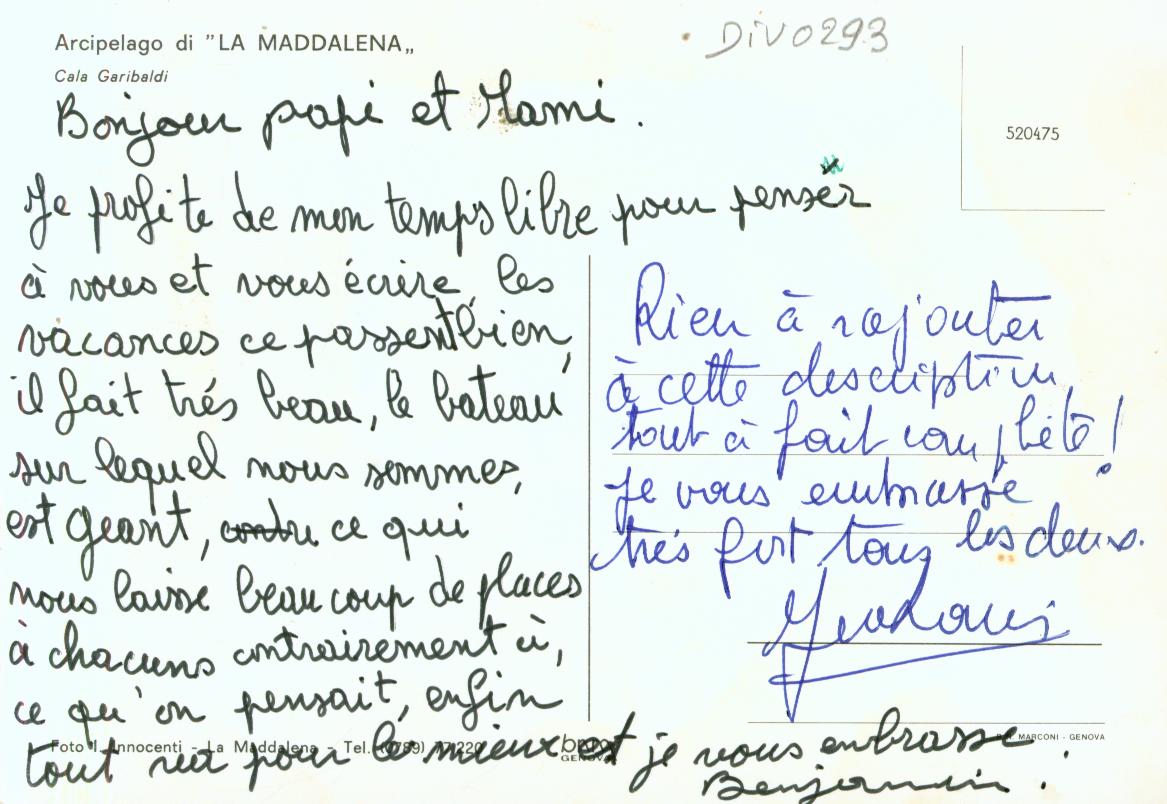 Arcipelago di "LA MADDALENA„
DIV0293
Cala Garibaldi
520475
Bonjour papi et Mami.
Je profite de mon temps libre pour penser
à vous et vous écrire, les
vacances ce passent bien,
il fait trés beau, le bateau
sur lequel nous sommes,
est geant, contre ce qui
nous laisse beaucoup de places
à chacuns contrairement à,
ce qu'on pensait, enfin
tout va pour le mieux et je vous enbrasse.
Benjamin.
Rien à rajouter
à cette description,
tout à fait complète!
Je vous embrasse
très fort tous les deux.
Foto I. Innocenti - La Maddalena - Tel. (0789)
GENOVA
MARCONI - GENOVA